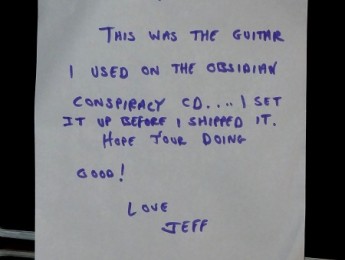 THIS WAS THE GUITAR
I USED ON THE OBSIDIAN
CONSPIRACY CD.... I SET
IT UP BEFORE I SHIPPED IT.
HOPE YOUR DOING
GOOD!
LOVE
JEFF